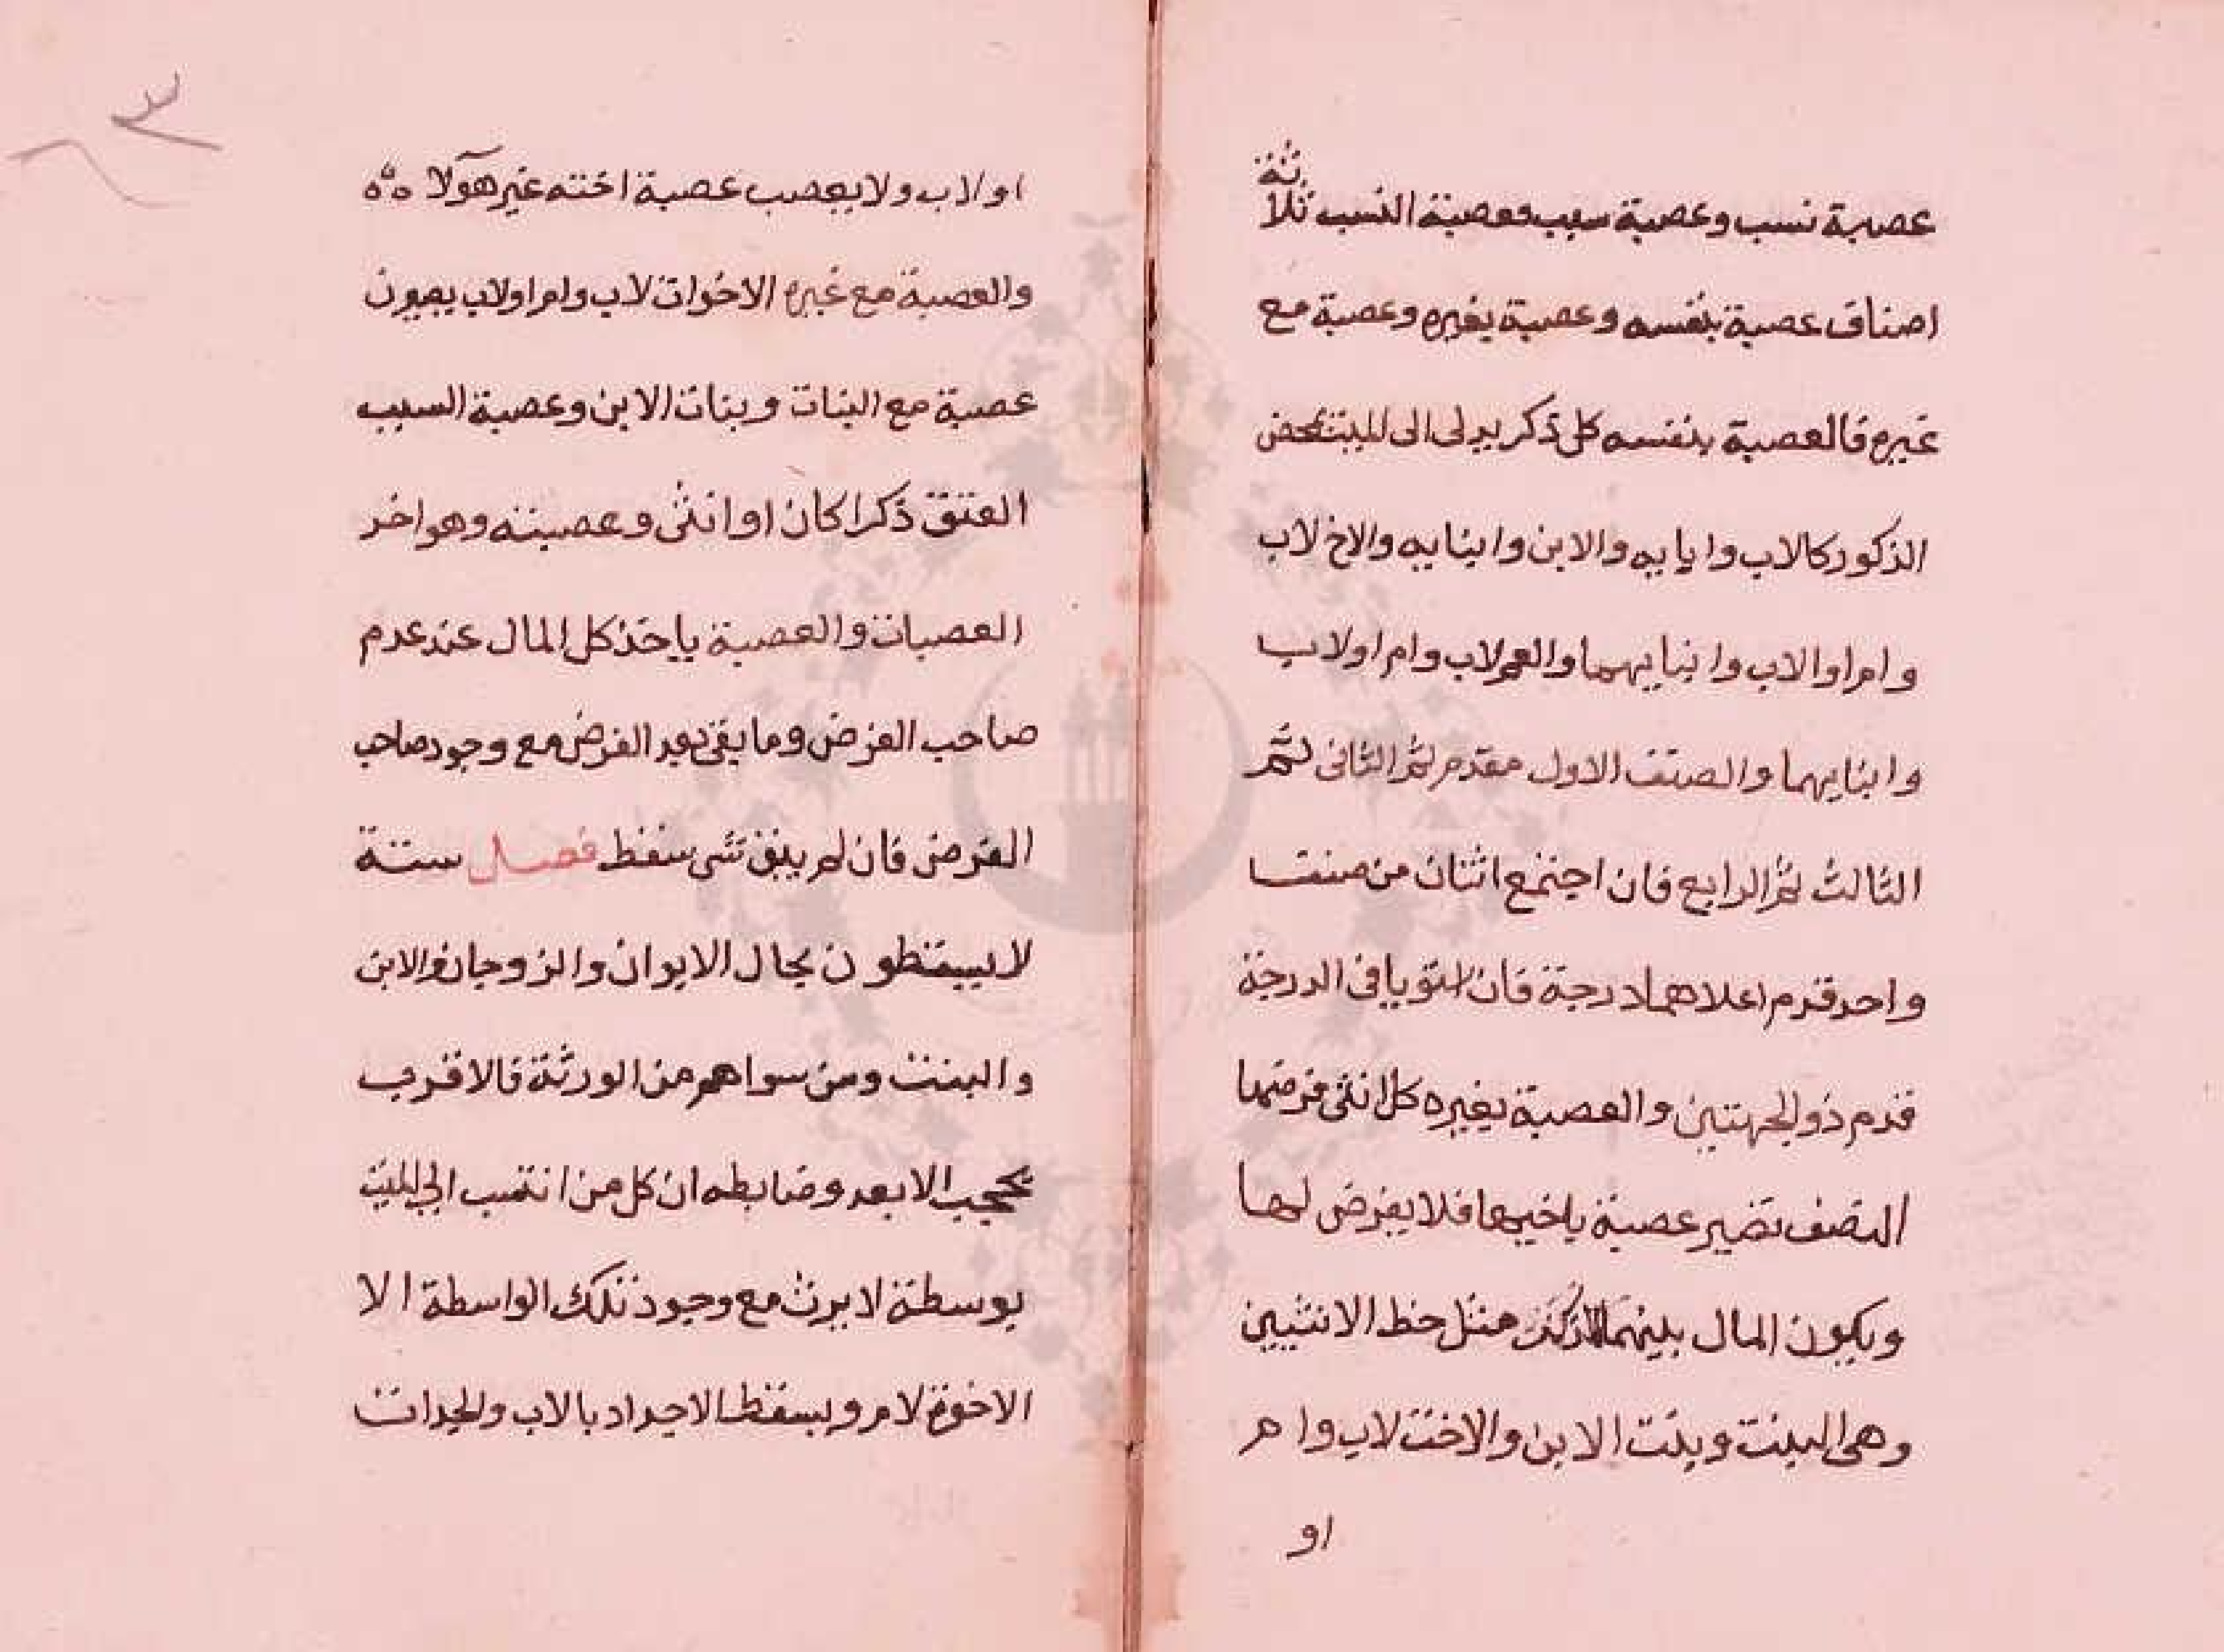 عصبة نسب وعصبة سبب وعصبة النسب ثلاثة
اصناف عصبة بنفسه وعصبة بغيره وعصبة مع
غيره فالعصبة بنفسه كل ذكر يدلى الى الميت بمحض
الذكور كالاب وابايه والابن وابنايه والاخ لاب
وام او الاب وابنايهما والعم لاب وام او لاب
وابنايهما والصنف الاول مقدم ثم الثانى ثم
الثالث ثم الرابع فان اجتمع اثنان من صنف
واحد قدم اعلاهما درجة فان استويا فى الدرجة
قدم ذو الجهتين والعصبة بغيره كل انثى فرضها
النصف تصير عصبة باخيها فلا يفرض لها
ويكون المال بينهما للذكر مثل حظ الانثيين
وهى البنت وبنت الابن والاخت لاب وام
او
٣
او لاب ولا يعصب عصبة اخته غير هولآ
والعصبة مع غيره الاخوات لاب وام او لاب يصيرن
عصبة مع البنات وبنات الابن وعصبة السبب
العتق ذكرا كان او انثى وعصبته وهو اخر
العصبات والعصبة ياخذ كل المال عند عدم
صاحب الفرض وما بقى بعد الفرض مع وجود صاحب
الفرض فان لم يبق شى سقط فصل ستة
لا يسقطون بحال الابوان والزوجان والابن
والبنت ومن سواهم من الورثة فالاقرب
يحجب الابعد وضابطه ان كل من انتسب الى الميت
بوسطة لا يرث مع وجود تلك الواسطة الا
الاخوة لام ويسقط الاجداد بالاب والجدات